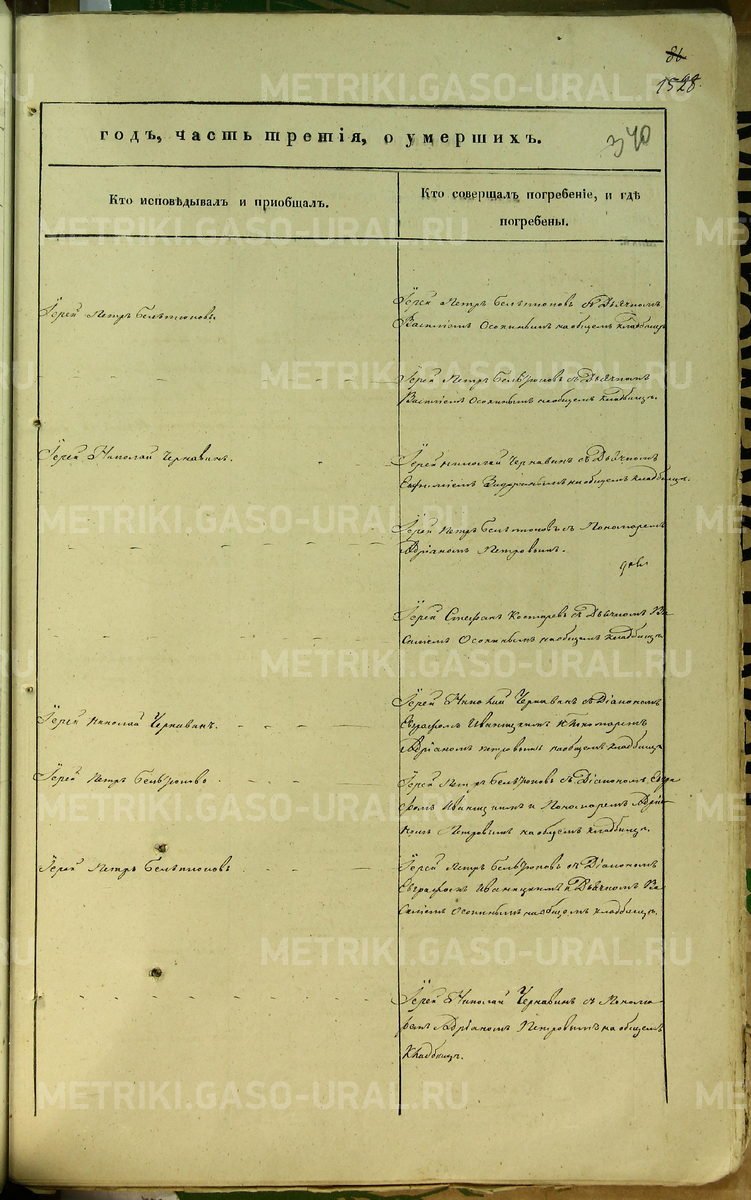 86
1528.
340
годъ, часть третія, о умершихъ.
Кто исповѣдывалъ и приобщалъ.
Кто совершалъ погребеніе, и гдѣ
погребены.
Іерей Петръ
Іерей Петръ съ Дьячкомъ
Василіемъ Осокинымъ на общемъ кладбищѣ
Іерей Петръ съ Дьячкомъ
Василіемъ Осокинымъ на общемъ кладбищѣ.
Іерей Николай Чернавинъ.
Іерей Николай Чернавинъ съ Дьячкомъ
на общемъ кладбищѣ.
Іерей Петръ съ Пономаремъ
Адріаномъ Петровымъ.
Іерей Стефанъ съ Дьячкомъ Ва
силіемъ Осокинымъ на общемъ кладбищѣ
Іерей Николай Чернавинъ.
Іерей Николай Чернавинъ съ Діакономъ
Евграфомъ Иваницкимъ и Пономаремъ
Адріаномъ Петровымъ на общемъ кладбищѣ
Іерей Петръ
Іерей Петръ съ Діакономъ Евгра
фомъ Иваницкимъ и Пономаремъ Адріа
номъ Петровымъ на общемъ кладбищѣ.
Іерей Петръ
Іерей Петръ съ Діакономъ
Евграфомъ Иваницкимъ и Дьячкомъ Ва
силіемъ Осокинымъ на общемъ кладбищѣ.
Іерей Николай Чернавинъ съ Понома
ремъ Адріаномъ Петровымъ на общемъ
кладбищѣ.
METRIKI.GASO-URAL.RU